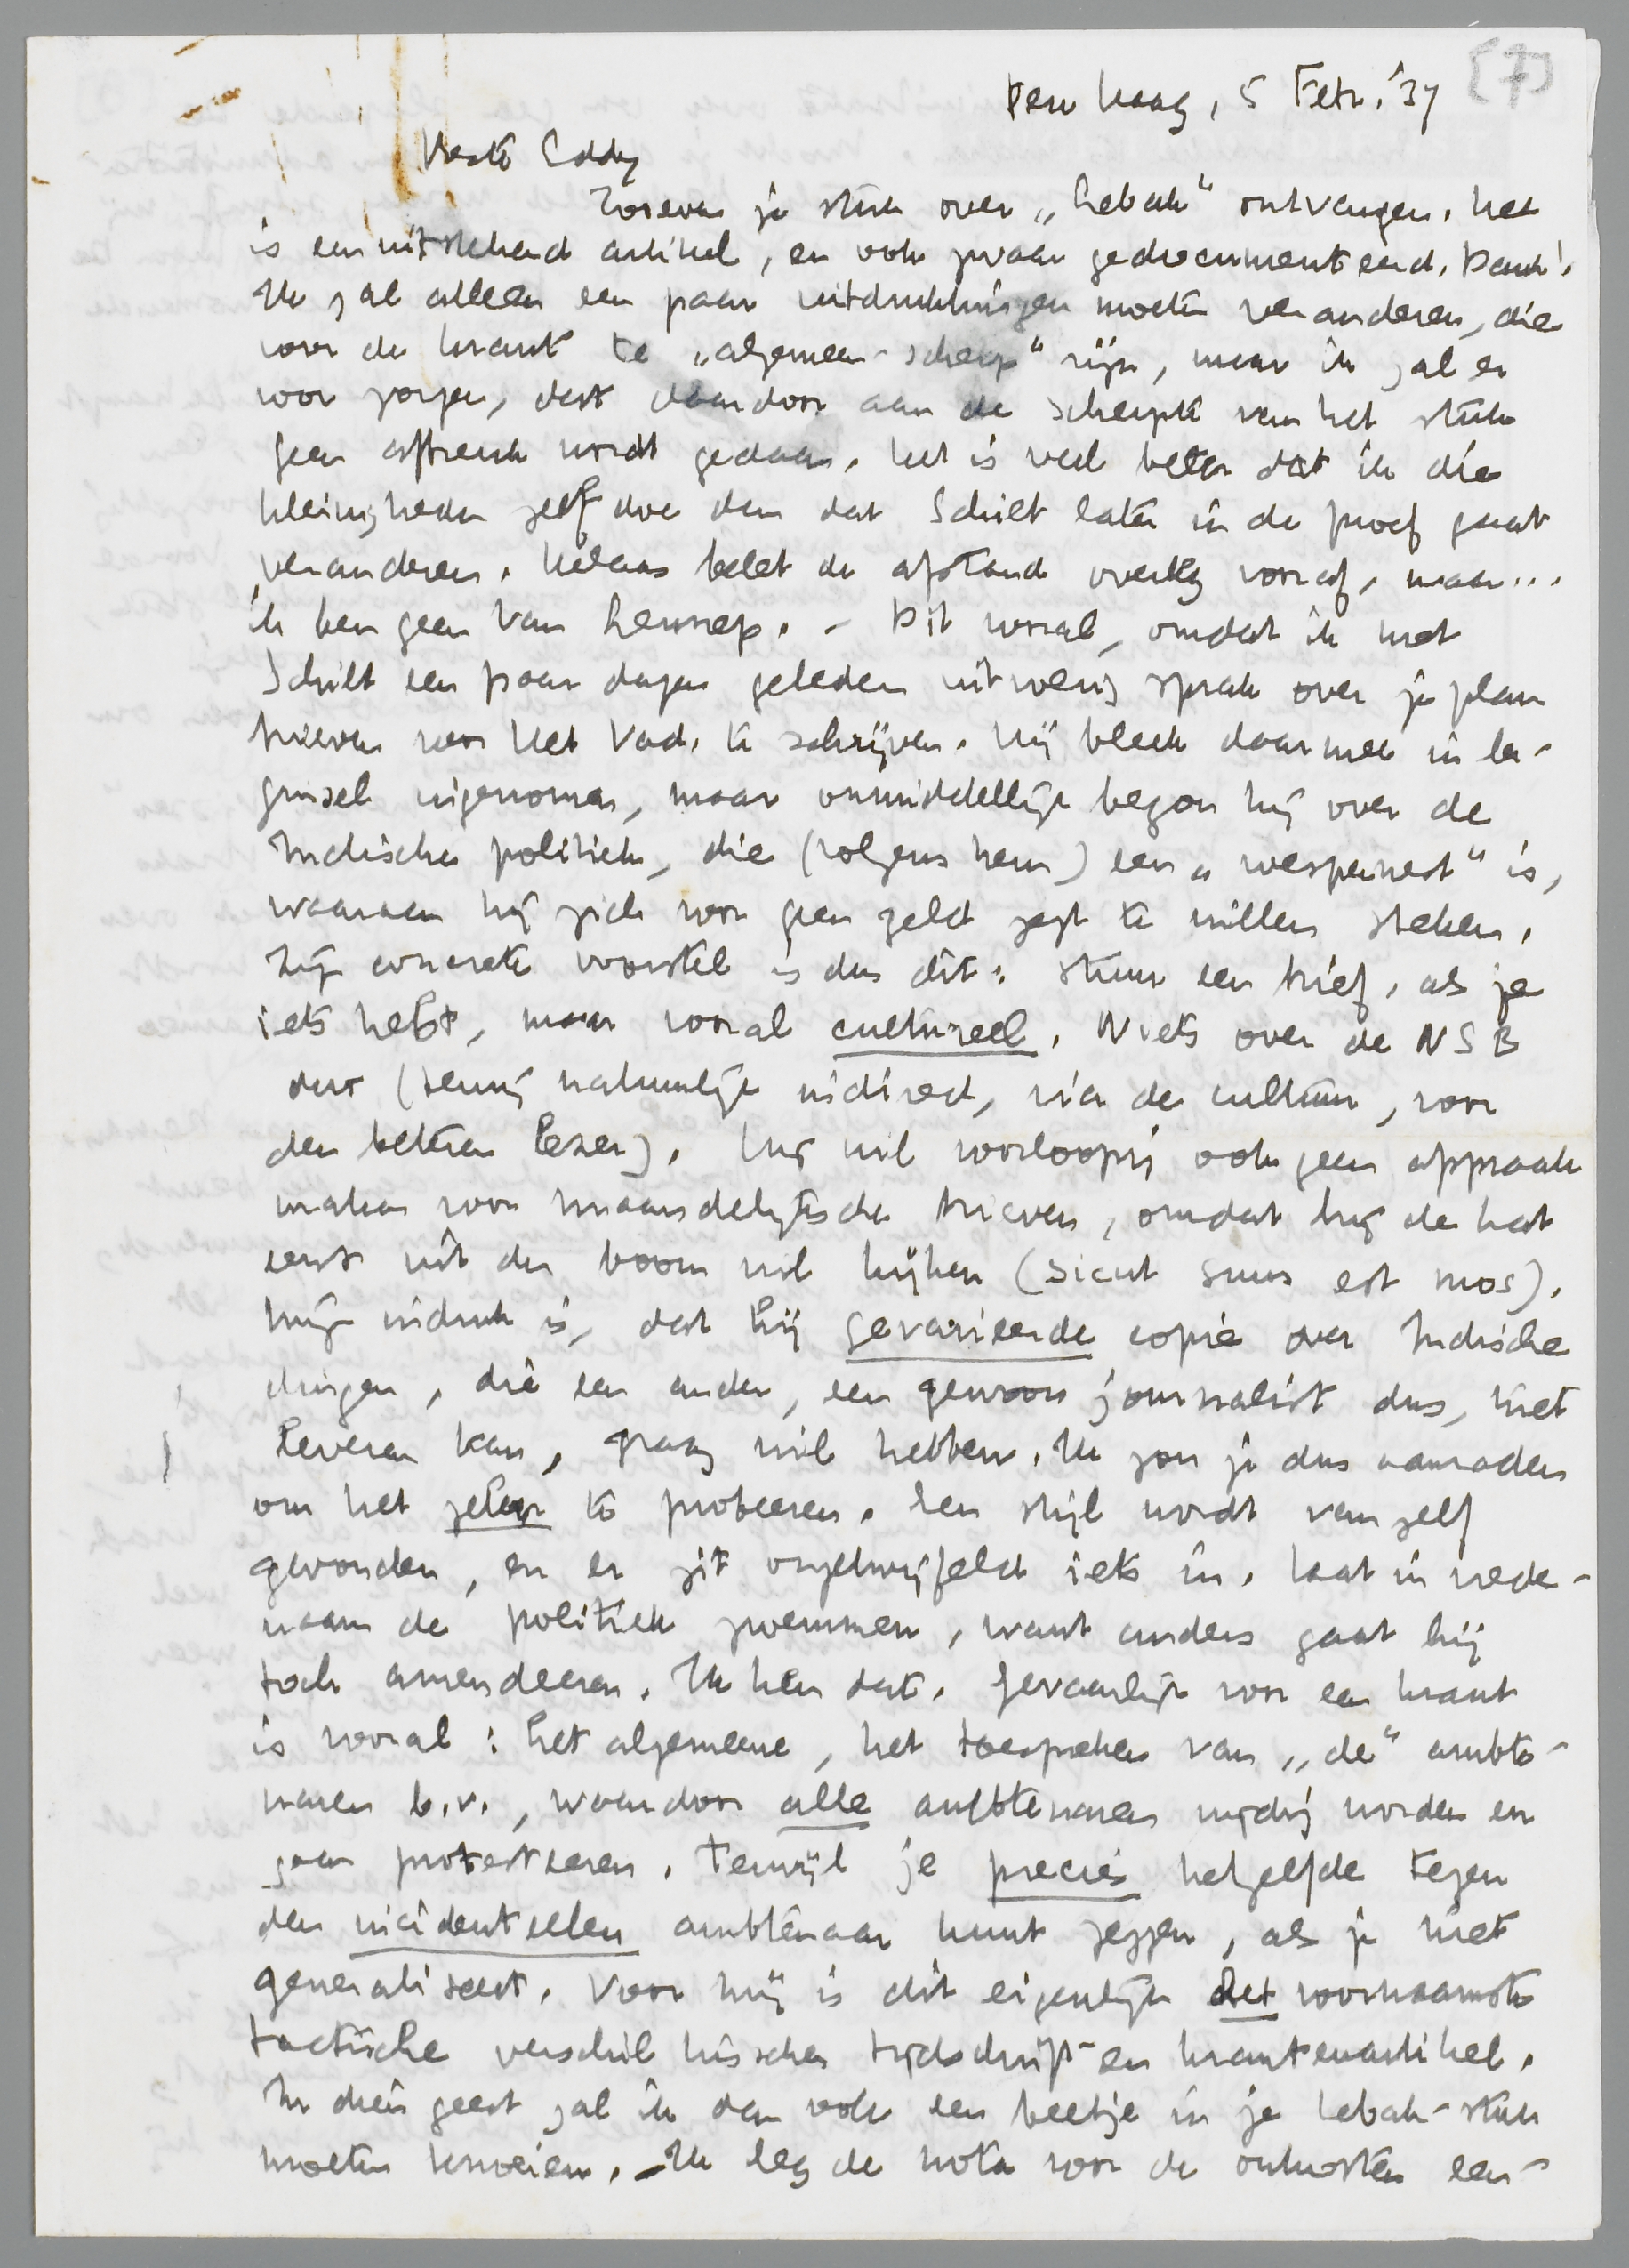 [7]
Den Haag, 5 Febr. '37
Beste Eddy
Zooeven je stuk over „Lebak" ontvangen. Het
is een uitstekend artikel, en ook zwaar gedocumenteerd. Dank!
Ik zal alleen een paar uitdrukkingen moeten veranderen, die
voor de krant te „algemeen-scherp" zijn, maar ik zal er
voor zorgen, dat daardoor aan de scherpte van het stuk
geen afbreuk wordt gedaan. Het is veel beter dat ik die
kleinigheden zelf doe dan dat Schilt later in de proef gaat
veranderen. Helaas belet de afstand overleg vooraf, maar...
ik ben geen Van Lennep. - Dit vooral, omdat ik met
Schilt een paar dagen geleden uitvoerig sprak over je plan
brieven voor Het Vad. te schrijven. Hij bleek daarmee in be-
ginsel ingenomen, maar onmiddellijk begon hij over de
Indische politiek, die (volgens hem) een „wespennest" is,
waaraan hij zich voor geen geld zegt te willen steken.
Zijn concrete voorstel is dus dit: stuur een brief, als je
iets hebt, maar vooral cultureel. Niets over de NSB
dus (tenzij natuurlijk indirect, via de cultuur, voor
den beteren lezer). Hij wil voorloopig ook geen afspraak
maken voor maandelijksche brieven, omdat hij de kat
eerst uit den boom wil kijken (sicut suus est mos).
Mijn indruk is, dat hij gevarieerde copie over Indische
dingen, die een ander, een gewoon journalist dus, niet
leveren kan, graag wil hebben. Ik zou je dus aanraden
om het zeker te probeeren. Een stijl wordt vanzelf
gevonden, en er zit ongetwijfeld iets in. Laat in vrede-
naam de politiek zwemmen, want anders gaat hij
toch amendeeren. Ik ken dat. Gevaarlijk voor een krant
is vooral: het algemeene, het toespreken van „de" ambte-
naren b.v., waardoor alle ambtenaren nijdig worden en
gaan protesteeren. Terwijl je precies hetzelfde tegen
den incidenteelen ambtenaar kunt zeggen, als je niet
generaliseert. Voor mij is dit eigenlijk het voornaamste
tactische verschil tusschen tijdschrift- en krantenartikel.
In dien geest zal ik dan ook een beetje in je Lebak-stuk
moeten knoeien. - Ik leg de nota voor de onkosten een-